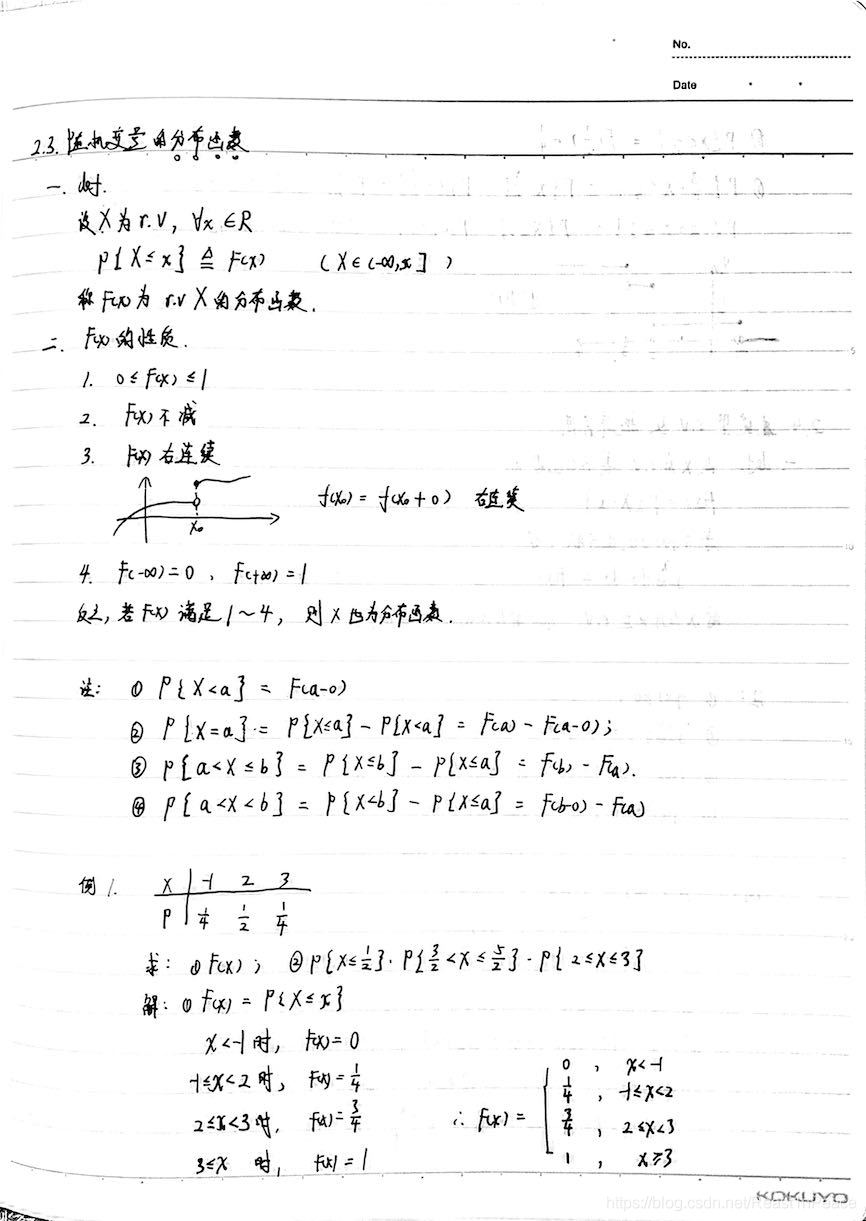 No.
Date
2.3. 随机变量的分布函数
一. def.
设 X 为 r.v, ∀x ∈ R
P{X ≤ x} ≜ F(x) (X ∈ (-∞, x])
称 F(x) 为 r.v X 的分布函数.
二. F(x) 的性质.
1. 0 ≤ F(x) ≤ 1
2. F(x) 不减
3. F(x) 右连续
x₀
f(x₀) = f(x₀+0) 右连续
4. F(-∞) = 0, F(+∞) = 1
反之, 若 F(x) 满足 1~4, 则 X 必为分布函数.
注: ① P{X<a} = F(a-0)
② P{X=a} = P{X≤a} - P{X<a} = F(a) - F(a-0);
③ P{a<X≤b} = P{X≤b} - P{X≤a} = F(b) - F(a).
④ P{a<X<b} = P{X<b} - P{X≤a} = F(b-0) - F(a)
例 1. X | -1 2 3
P | 1/4 1/2 1/4
求: ① F(x); ② P{X≤1/2}. P{3/2<X≤5/2}. P{2≤X≤3}
解: ① F(x) = P{X≤x}
x<-1 时, F(x) = 0
-1≤x<2 时, F(x) = 1/4
2≤x<3 时, F(x) = 3/4
3≤x 时, F(x) = 1
∴ F(x) = { 0, x<-1
1/4, -1≤x<2
3/4, 2≤x<3
1, x≥3
KOKUYO